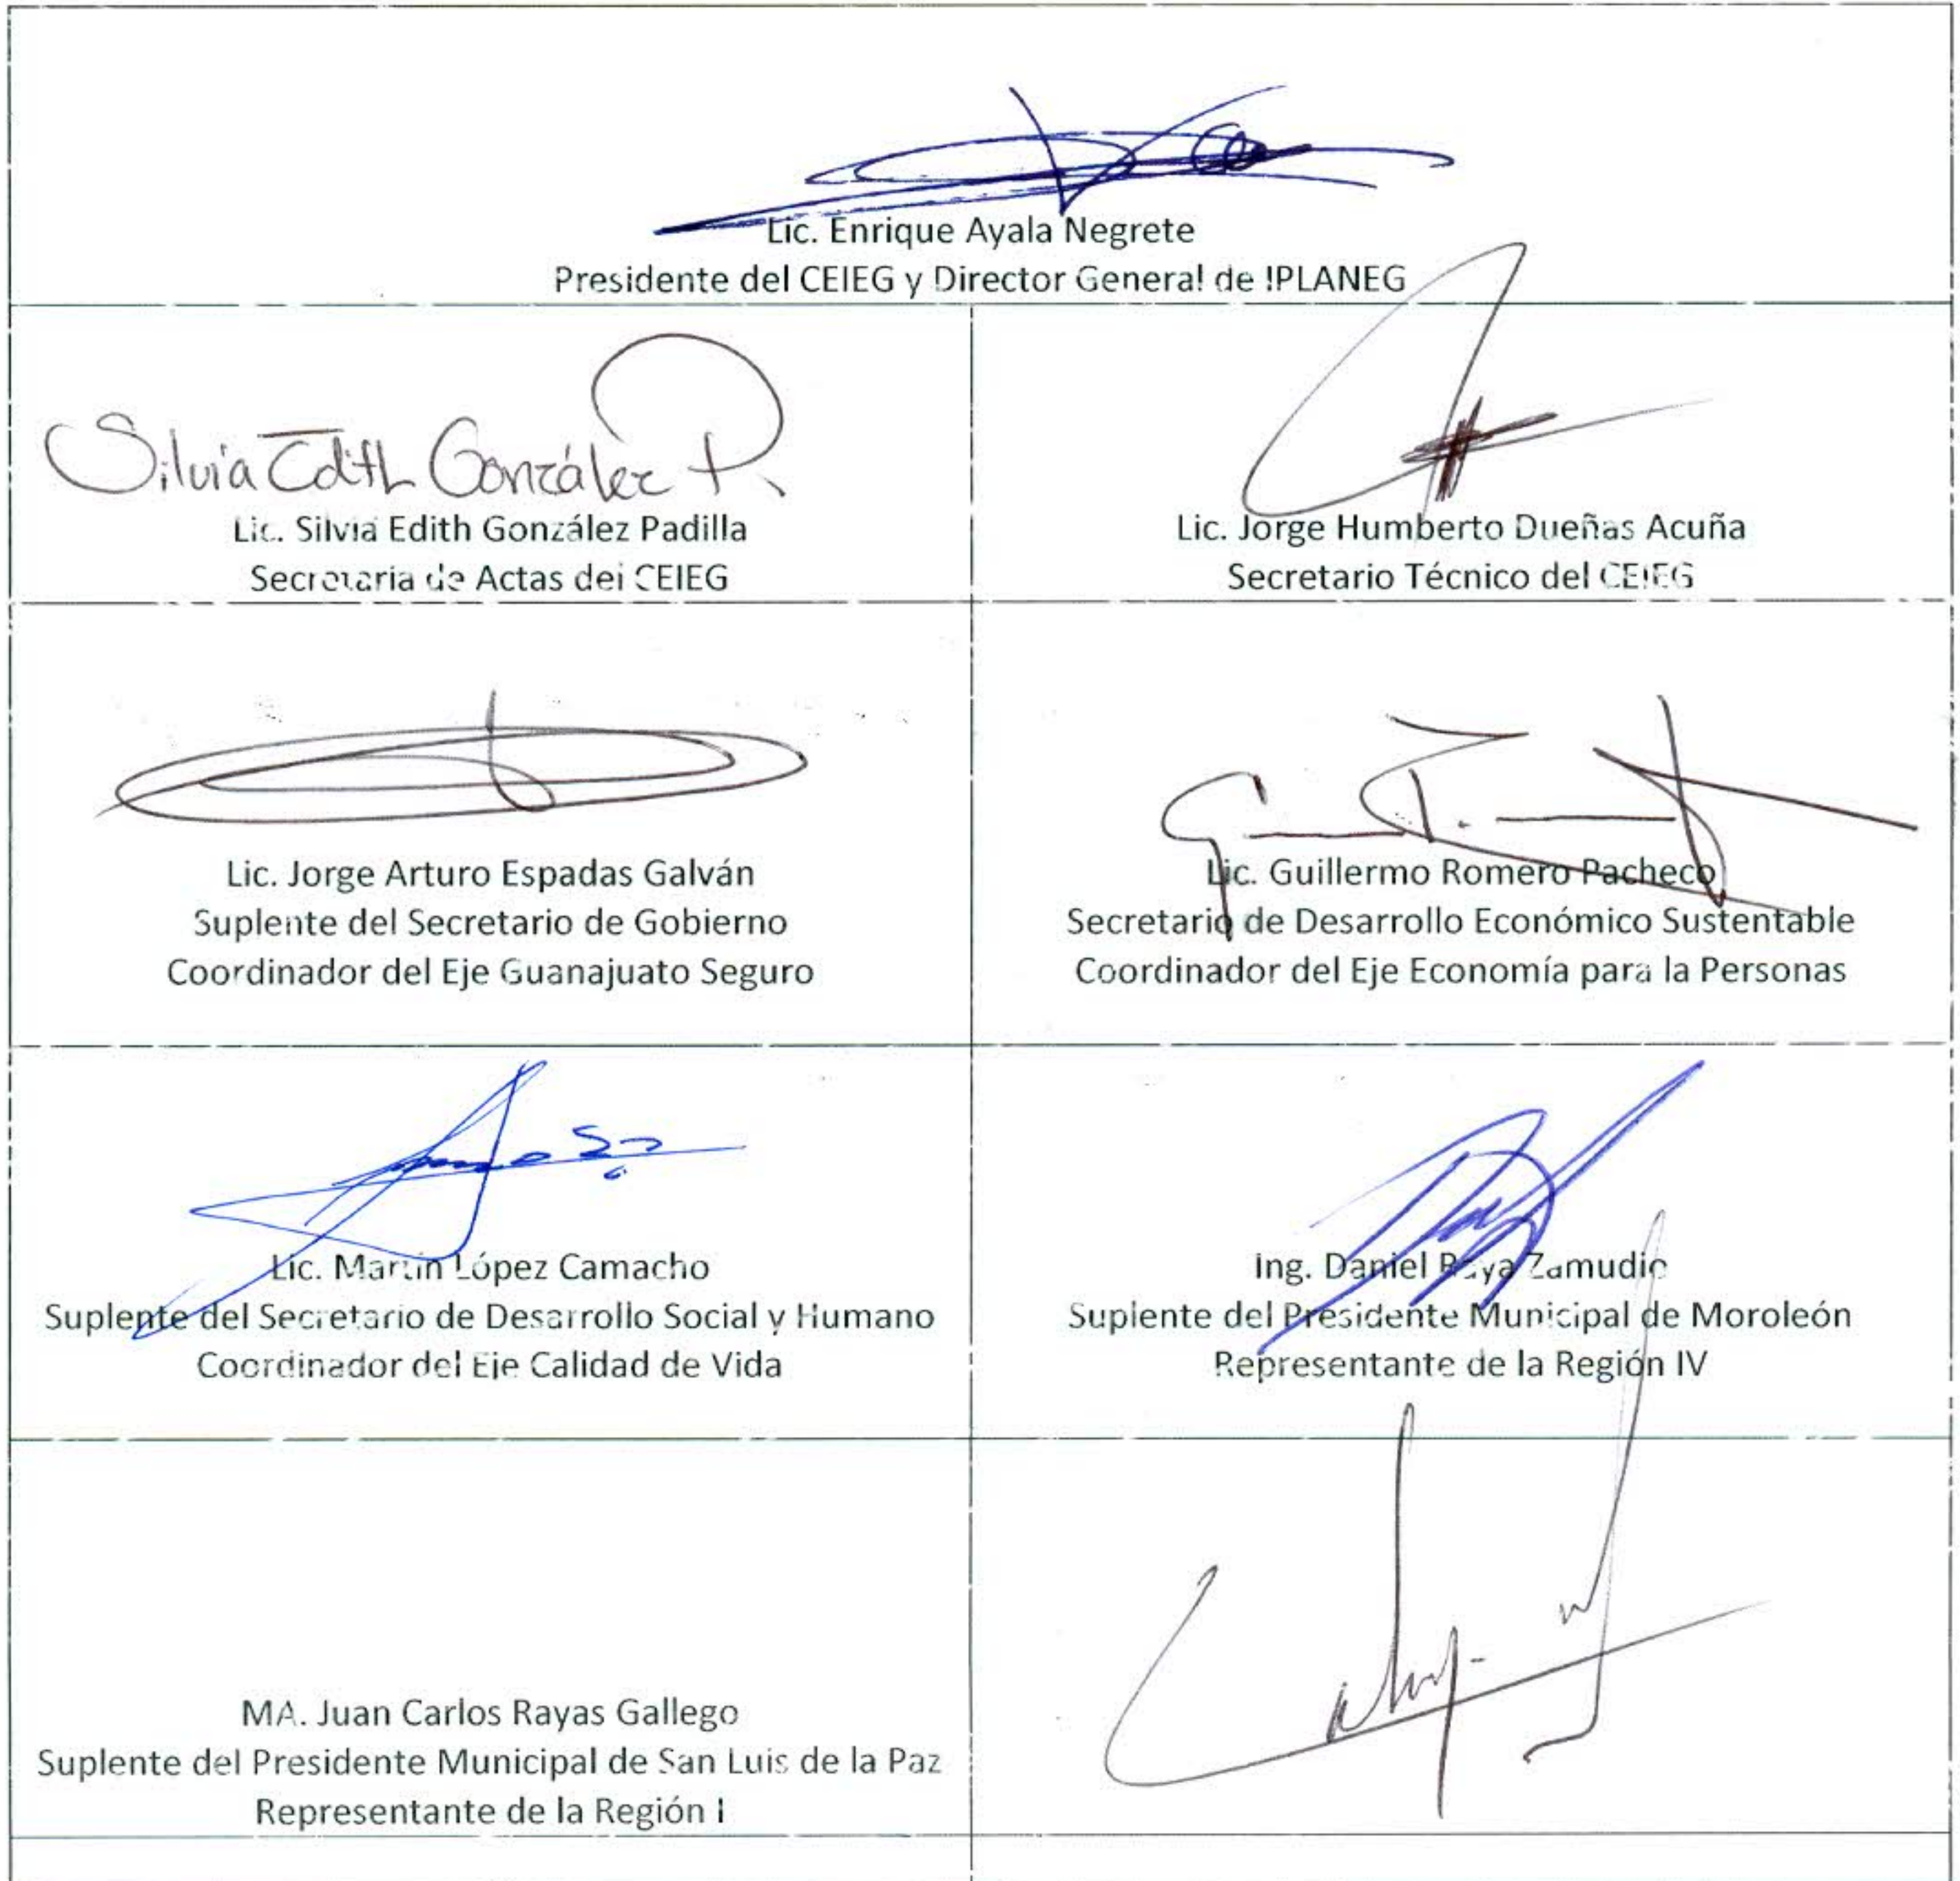 Lic. Enrique Ayala Negrete
Presidente del CEIEG y Director General de IPLANEG
Silvia Edith González P.
Lic. Silvia Edith González Padilla
Secretaria de Actas del CEIEG
Lic. Jorge Humberto Dueñas Acuña
Secretario Técnico del CEIEG
Lic. Jorge Arturo Espadas Galván
Suplente del Secretario de Gobierno
Coordinador del Eje Guanajuato Seguro
Lic. Guillermo Romero Pacheco
Secretario de Desarrollo Económico Sustentable
Coordinador del Eje Economía para la Personas
Lic. Martín López Camacho
Suplente del Secretario de Desarrollo Social y Humano
Coordinador del Eje Calidad de Vida
Ing. Daniel Raya Zamudio
Suplente del Presidente Municipal de Moroleón
Representante de la Región IV
MA. Juan Carlos Rayas Gallego
Suplente del Presidente Municipal de San Luis de la Paz
Representante de la Región I